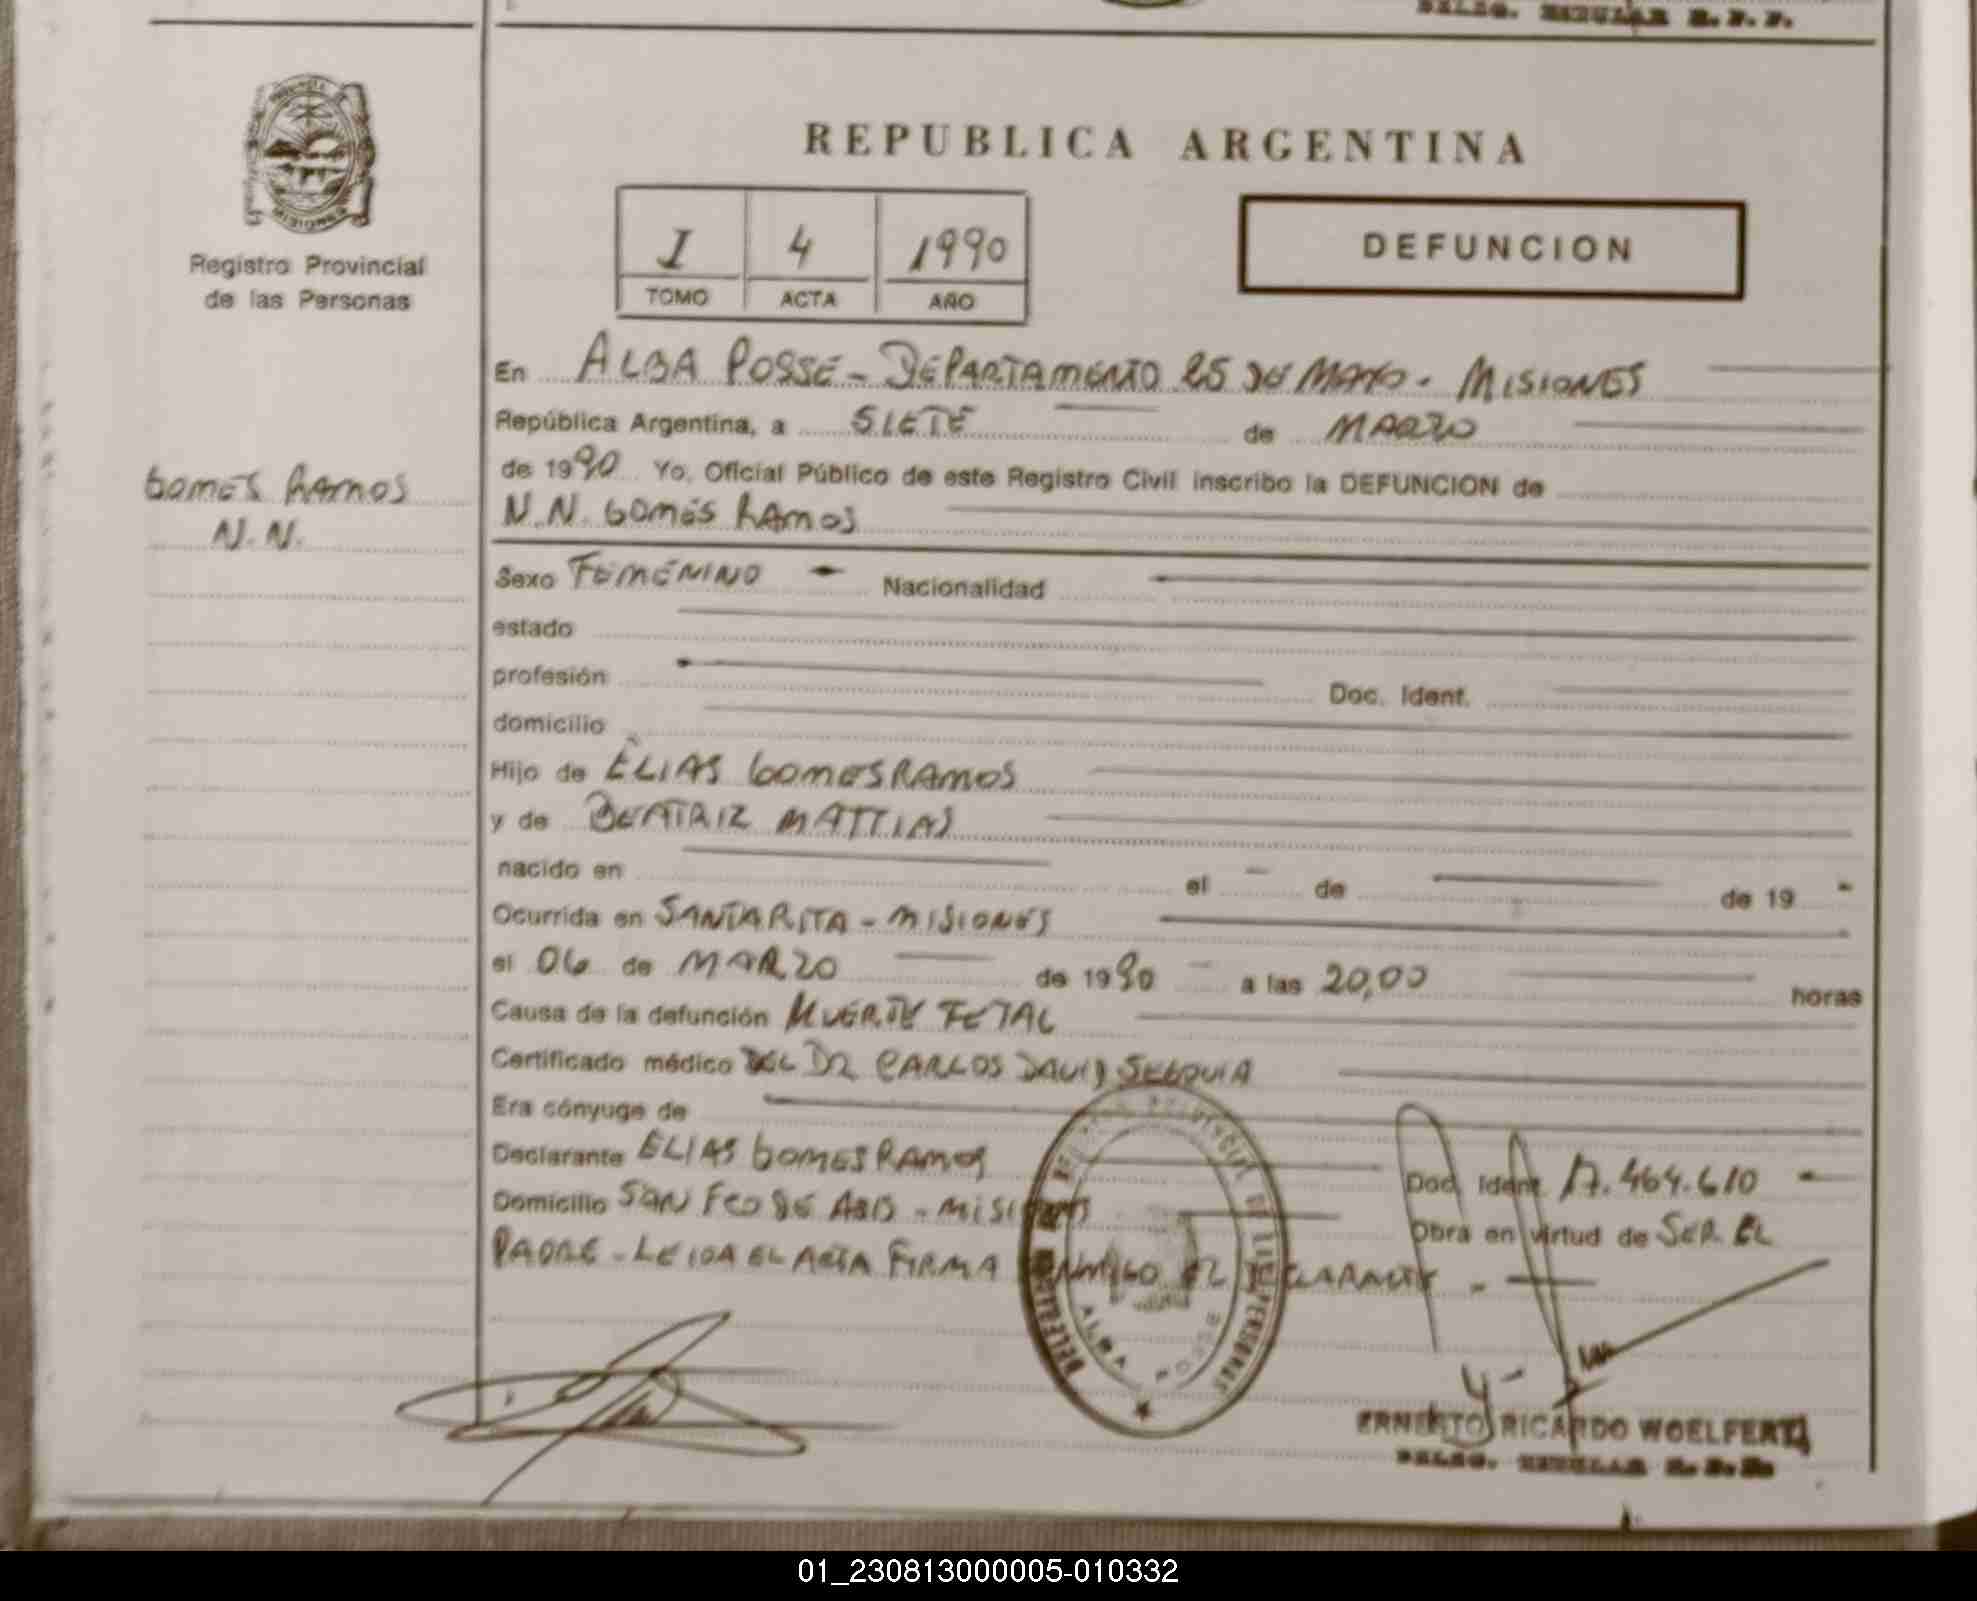 DELEG. TITULAR R. P. P.
REPUBLICA ARGENTINA
Registro Provincial
de las Personas
MISIONES
I 4 1990
TOMO ACTA AÑO
DEFUNCION
En ALBA POSSE - DEPARTAMENTO 25 DE MAYO - MISIONES
República Argentina, a SIETE de MARZO
de 1990 Yo, Oficial Público de este Registro Civil inscribo la DEFUNCION de
N.N. GOMES RAMOS
GOMES RAMOS
N.N.
Sexo FEMENINO - Nacionalidad
estado
profesión Doc. Ident.
domicilio
Hijo de ELIAS GOMES RAMOS
y de BEATRIZ MATTIAS
nacido en el de de 19
Ocurrida en SANTA RITA - MISIONES
el 06 de MARZO de 1990 a las 20,00 horas
Causa de la defunción MUERTE FETAL
Certificado médico DEL DR CARLOS DAVID SEGOVIA
Era cónyuge de
Declarante ELIAS GOMES RAMOS Doc. Ident. 17.464.610
Domicilio SAN FCO DE ASIS - MISIONES Obra en virtud de SER EL
PADRE - LEIDA EL ACTA FIRMA CONMIGO EL DECLARANTE -
DELEGACION REGISTRO PROVINCIAL DE LAS PERSONAS
ALBA POSSE
ERNESTO RICARDO WOELFERT
DELEG. TITULAR R. P. P.
01_230813000005-010332